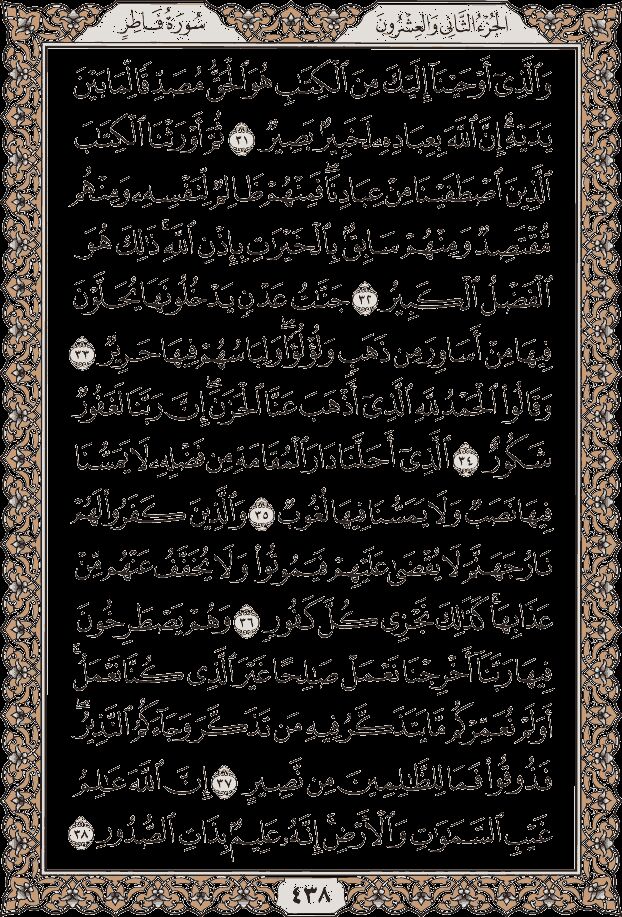 سُورَةُ فَاطِرٍ
الجُزْءُ الثَّانِي وَالعِشْرُونَ
وَٱلَّذِىٓ أَوۡحَيۡنَآ إِلَيۡكَ مِنَ ٱلۡكِتَٰبِ هُوَ ٱلۡحَقُّ مُصَدِّقٗا لِّمَا بَيۡنَ
يَدَيۡهِۗ إِنَّ ٱللَّهَ بِعِبَادِهِۦ لَخَبِيرُۢ بَصِيرٞ ٣١ ثُمَّ أَوۡرَثۡنَا ٱلۡكِتَٰبَ
ٱلَّذِينَ ٱصۡطَفَيۡنَا مِنۡ عِبَادِنَاۖ فَمِنۡهُمۡ ظَالِمٞ لِّنَفۡسِهِۦ وَمِنۡهُم
مُّقۡتَصِدٞ وَمِنۡهُمۡ سَابِقُۢ بِٱلۡخَيۡرَٰتِ بِإِذۡنِ ٱللَّهِۚ ذَٰلِكَ هُوَ
ٱلۡفَضۡلُ ٱلۡكَبِيرُ ٣٢ جَنَّٰتُ عَدۡنٖ يَدۡخُلُونَهَا يُحَلَّوۡنَ
فِيهَا مِنۡ أَسَاوِرَ مِن ذَهَبٖ وَلُؤۡلُؤٗاۖ وَلِبَاسُهُمۡ فِيهَا حَرِيرٞ ٣٣
وَقَالُواْ ٱلۡحَمۡدُ لِلَّهِ ٱلَّذِىٓ أَذۡهَبَ عَنَّا ٱلۡحَزَنَۖ إِنَّ رَبَّنَا لَغَفُورٞ
شَكُورٌ ٣٤ ٱلَّذِىٓ أَحَلَّنَا دَارَ ٱلۡمُقَامَةِ مِن فَضۡلِهِۦ لَا يَمَسُّنَا
فِيهَا نَصَبٞ وَلَا يَمَسُّنَا فِيهَا لُغُوبٞ ٣٥ وَٱلَّذِينَ كَفَرُواْ لَهُمۡ
نَارُ جَهَنَّمَ لَا يُقۡضَىٰ عَلَيۡهِمۡ فَيَمُوتُواْ وَلَا يُخَفَّفُ عَنۡهُم مِّنۡ
عَذَابِهَاۚ كَذَٰلِكَ نَجۡزِي كُلَّ كَفُورٖ ٣٦ وَهُمۡ يَصۡطَرِخُونَ
فِيهَا رَبَّنَآ أَخۡرِجۡنَا نَعۡمَلۡ صَٰلِحًا غَيۡرَ ٱلَّذِى كُنَّا نَعۡمَلُۚ
أَوَلَمۡ نُعَمِّرۡكُم مَّا يَتَذَكَّرُ فِيهِ مَن تَذَكَّرَ وَجَآءَكُمُ ٱلنَّذِيرُۖ
فَذُوقُواْ فَمَا لِلظَّٰلِمِينَ مِن نَّصِيرٍ ٣٧ إِنَّ ٱللَّهَ عَٰلِمُ
غَيۡبِ ٱلسَّمَٰوَٰتِ وَٱلۡأَرۡضِۚ إِنَّهُۥ عَلِيمُۢ بِذَاتِ ٱلصُّدُورِ ٣٨
٤٣٨